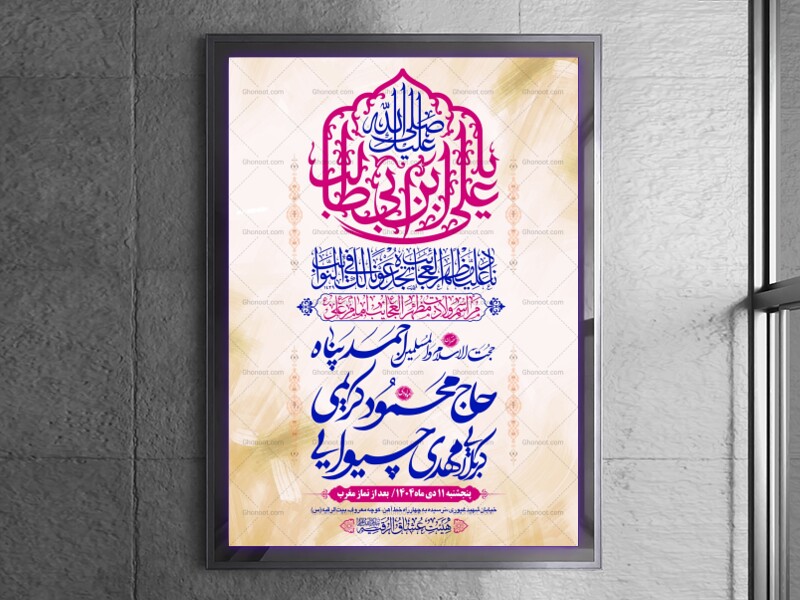 صلی الله علیه
یا علی ابن ابی طالب
ناد علیا مظهر العجائب تجده عونا لک فی النوائب
مراسم ولادت مظهر العجایب امام امیر علی
حجت الاسلام والمسلمین احمد پناه
حاج محمود کریمی
کربلایی مهدی چیوایی
پنجشنبه ۱۱ دی ماه ۱۴۰۴/ بعد از نماز مغرب
خیابان شهید کبیری، نرسیده به چهارراه خط آهن، کوچه معروف، بیت الرقیه (س)
هیئت عشاق الرقیه
Ghonoot.com